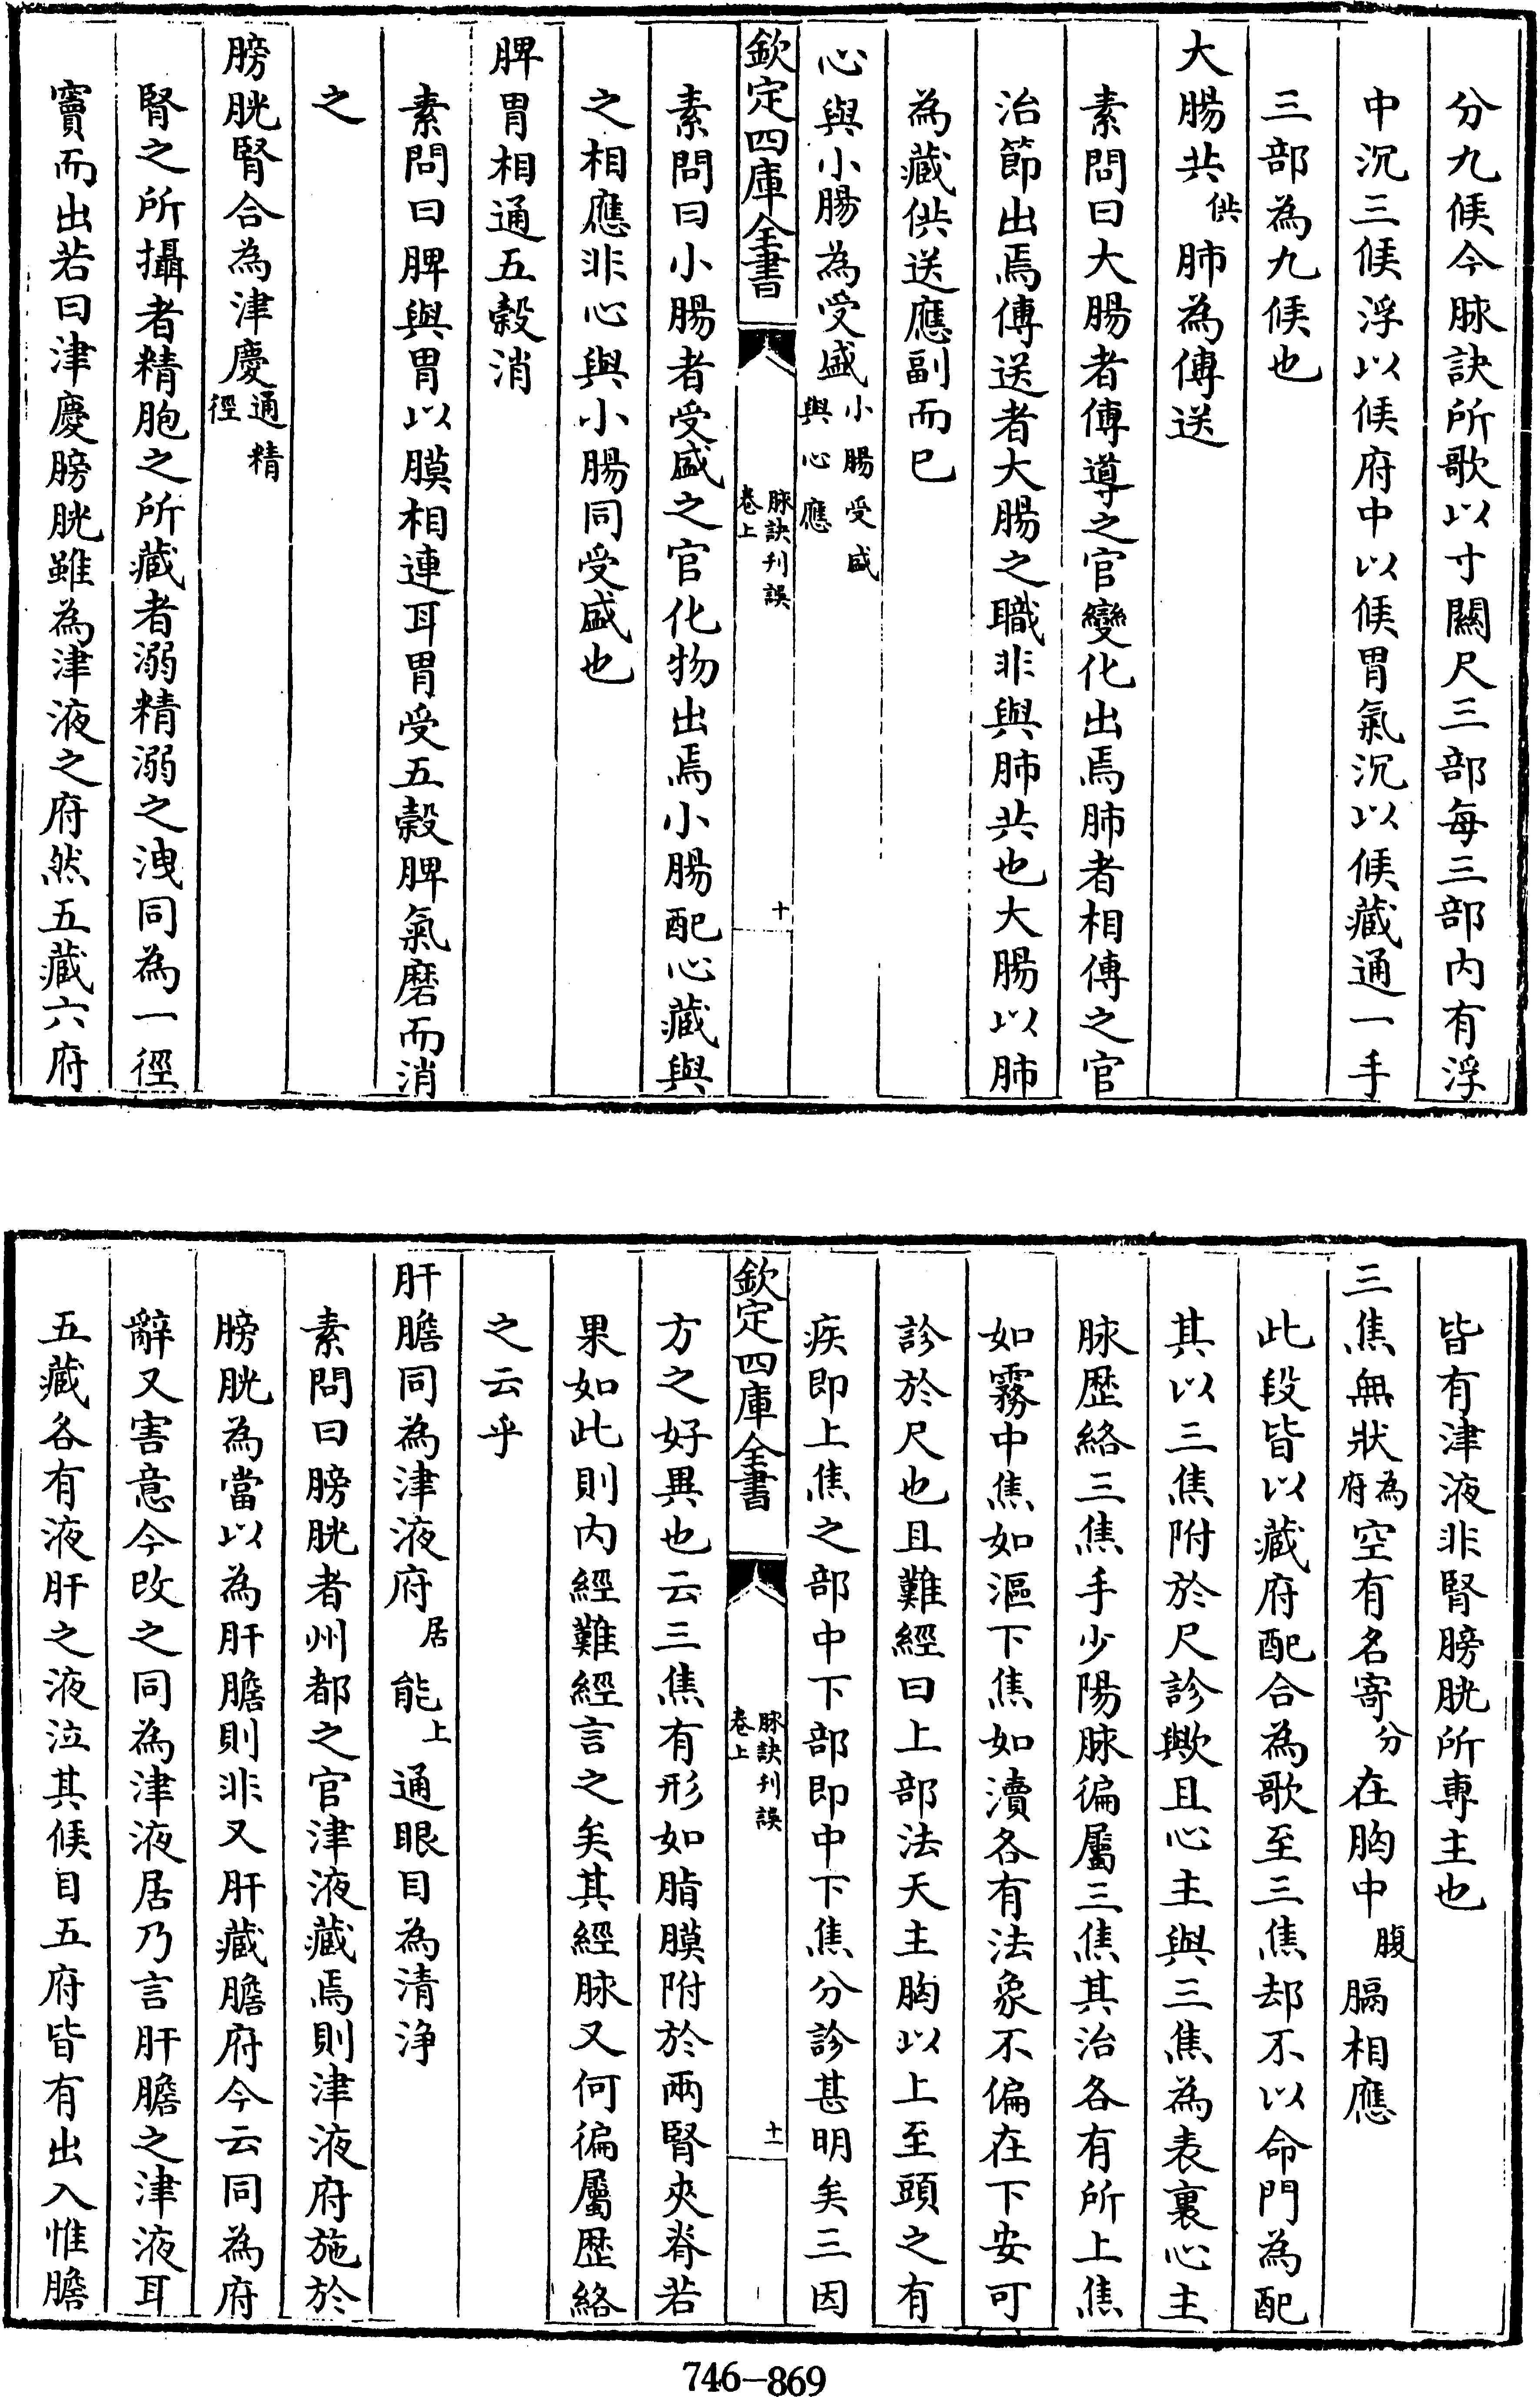 分九候今脉訣所歌以寸關尺三部每三部内有浮
中沉三候浮以候府中以候胃氣沉以候藏通一手
三部為九候也
大腸共供肺為傳送
素問曰大腸者傳導之官變化出焉肺者相傅之官
治節出焉傳送者大腸之職非與肺共也大腸以肺
為藏供送應副而已
心與小腸為受盛小腸受盛與心應
欽定四庫全書
脉訣刋誤
卷上
十
素問曰小腸者受盛之官化物出焉小腸配心藏與
之相應非心與小腸同受盛也
脾胃相通五穀消
素問曰脾與胃以膜相連耳胃受五穀脾氣磨而消
之
膀胱腎合為津慶通精徑
腎之所攝者精胞之所藏者溺精溺之洩同為一徑
竇而出若曰津慶膀胱雖為津液之府然五藏六府
皆有津液非腎膀胱所專主也
三焦無狀為府空有名寄分在胸中腹膈相應
此段皆以藏府配合為歌至三焦却不以命門為配
其以三焦附於尺診歟且心主與三焦為表裏心主
脉歴絡三焦手少陽脉徧屬三焦其治各有所上焦
如霧中焦如漚下焦如瀆各有法象不偏在下安可
診於尺也且難經曰上部法天主胸以上至頭之有
疾即上焦之部中下部即中下焦分診甚明矣三因
欽定四庫全書
脉訣刋誤
卷上
十一
方之好異也云三焦有形如脂膜附於兩腎夾脊若
果如此則内經難經言之矣其經脉又何徧屬歴絡
之云乎
肝膽同為津液府居能上通眼目為清浄
素問曰膀胱者州都之官津液藏焉則津液府施於
膀胱為當以為肝膽則非又肝藏膽府今云同為府
辭又害意今改之同為津液居乃言肝膽之津液耳
五藏各有液肝之液泣其候目五府皆有出入惟膽
746-869